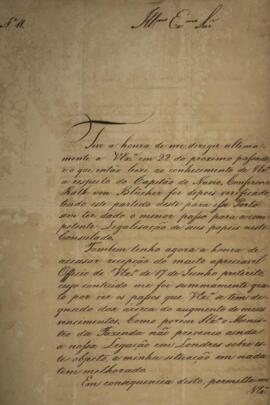 Nº 11.
Illmo Exmo Snr
Tive a honra de me dirigir ultima-
mente a V Exª em 22 do proximo passado,
e o que então levei ao conhecimento de V Exª
a respeito do Capitão de Navio,
von Blücher foi depois verificado,
tendo este partido deste para esse Porto
sem ter dado o menor passo para a com-
petente Legalisação de seus papeis neste
Consulado.
Tambem tenho agora a honra de
accusar recepção do muito apreciavel
Officio de V Exª de 17 de Junho preterito,
cujo contendo me foi summamente gra-
to por ver os passos que V Exª se tem di-
gnado dar acerca do augmento de meus
vencimentos. Como porem S Exª o Minis-
tro da Fazenda não preveniu ainda
a nossa Legação em Londres sobre es-
te objecto, a minha situação em nada
tem melhorado.
Em consequencia disto, permitta-me
V Exª